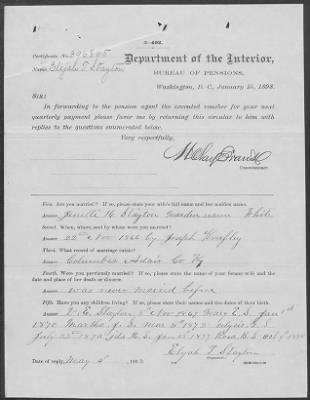 3-402.
Certificate No.
Name, Elijah T Stayton
Department of the Interior,
BUREAU OF PENSIONS,
Washington, D. C., January 15, 1898.
SIR:
In forwarding to the pension agent the executed voucher for your next
quarterly payment please favor me by returning this circular to him with
replies to the questions enumerated below.
Very respectfully,
H Clay Evans
Commissioner.
First. Are you married? If so, please state your wife's full name and her maiden name.
Answer. H. Stayton maiden name White
Second. When, where, and by whom were you married?
Answer. 22nd Nov 1866 by Joseph
Third. What record of marriage exists?
Answer. Columbia Adair Co Ky
Fourth. Were you previously married? If so, please state the name of your former wife and the
date and place of her death or divorce.
Answer. was never married before
Fifth. Have you any children living? If so, please state their names and the dates of their birth.
Answer. Stayton Nov 1867 Mary E. S. Jan
1870 Martha J. S. Mar 1872 S
July 1874 Ida S. Jan 1877 S Oct
Date of reply, May 4, 189
Elijah T Stayton